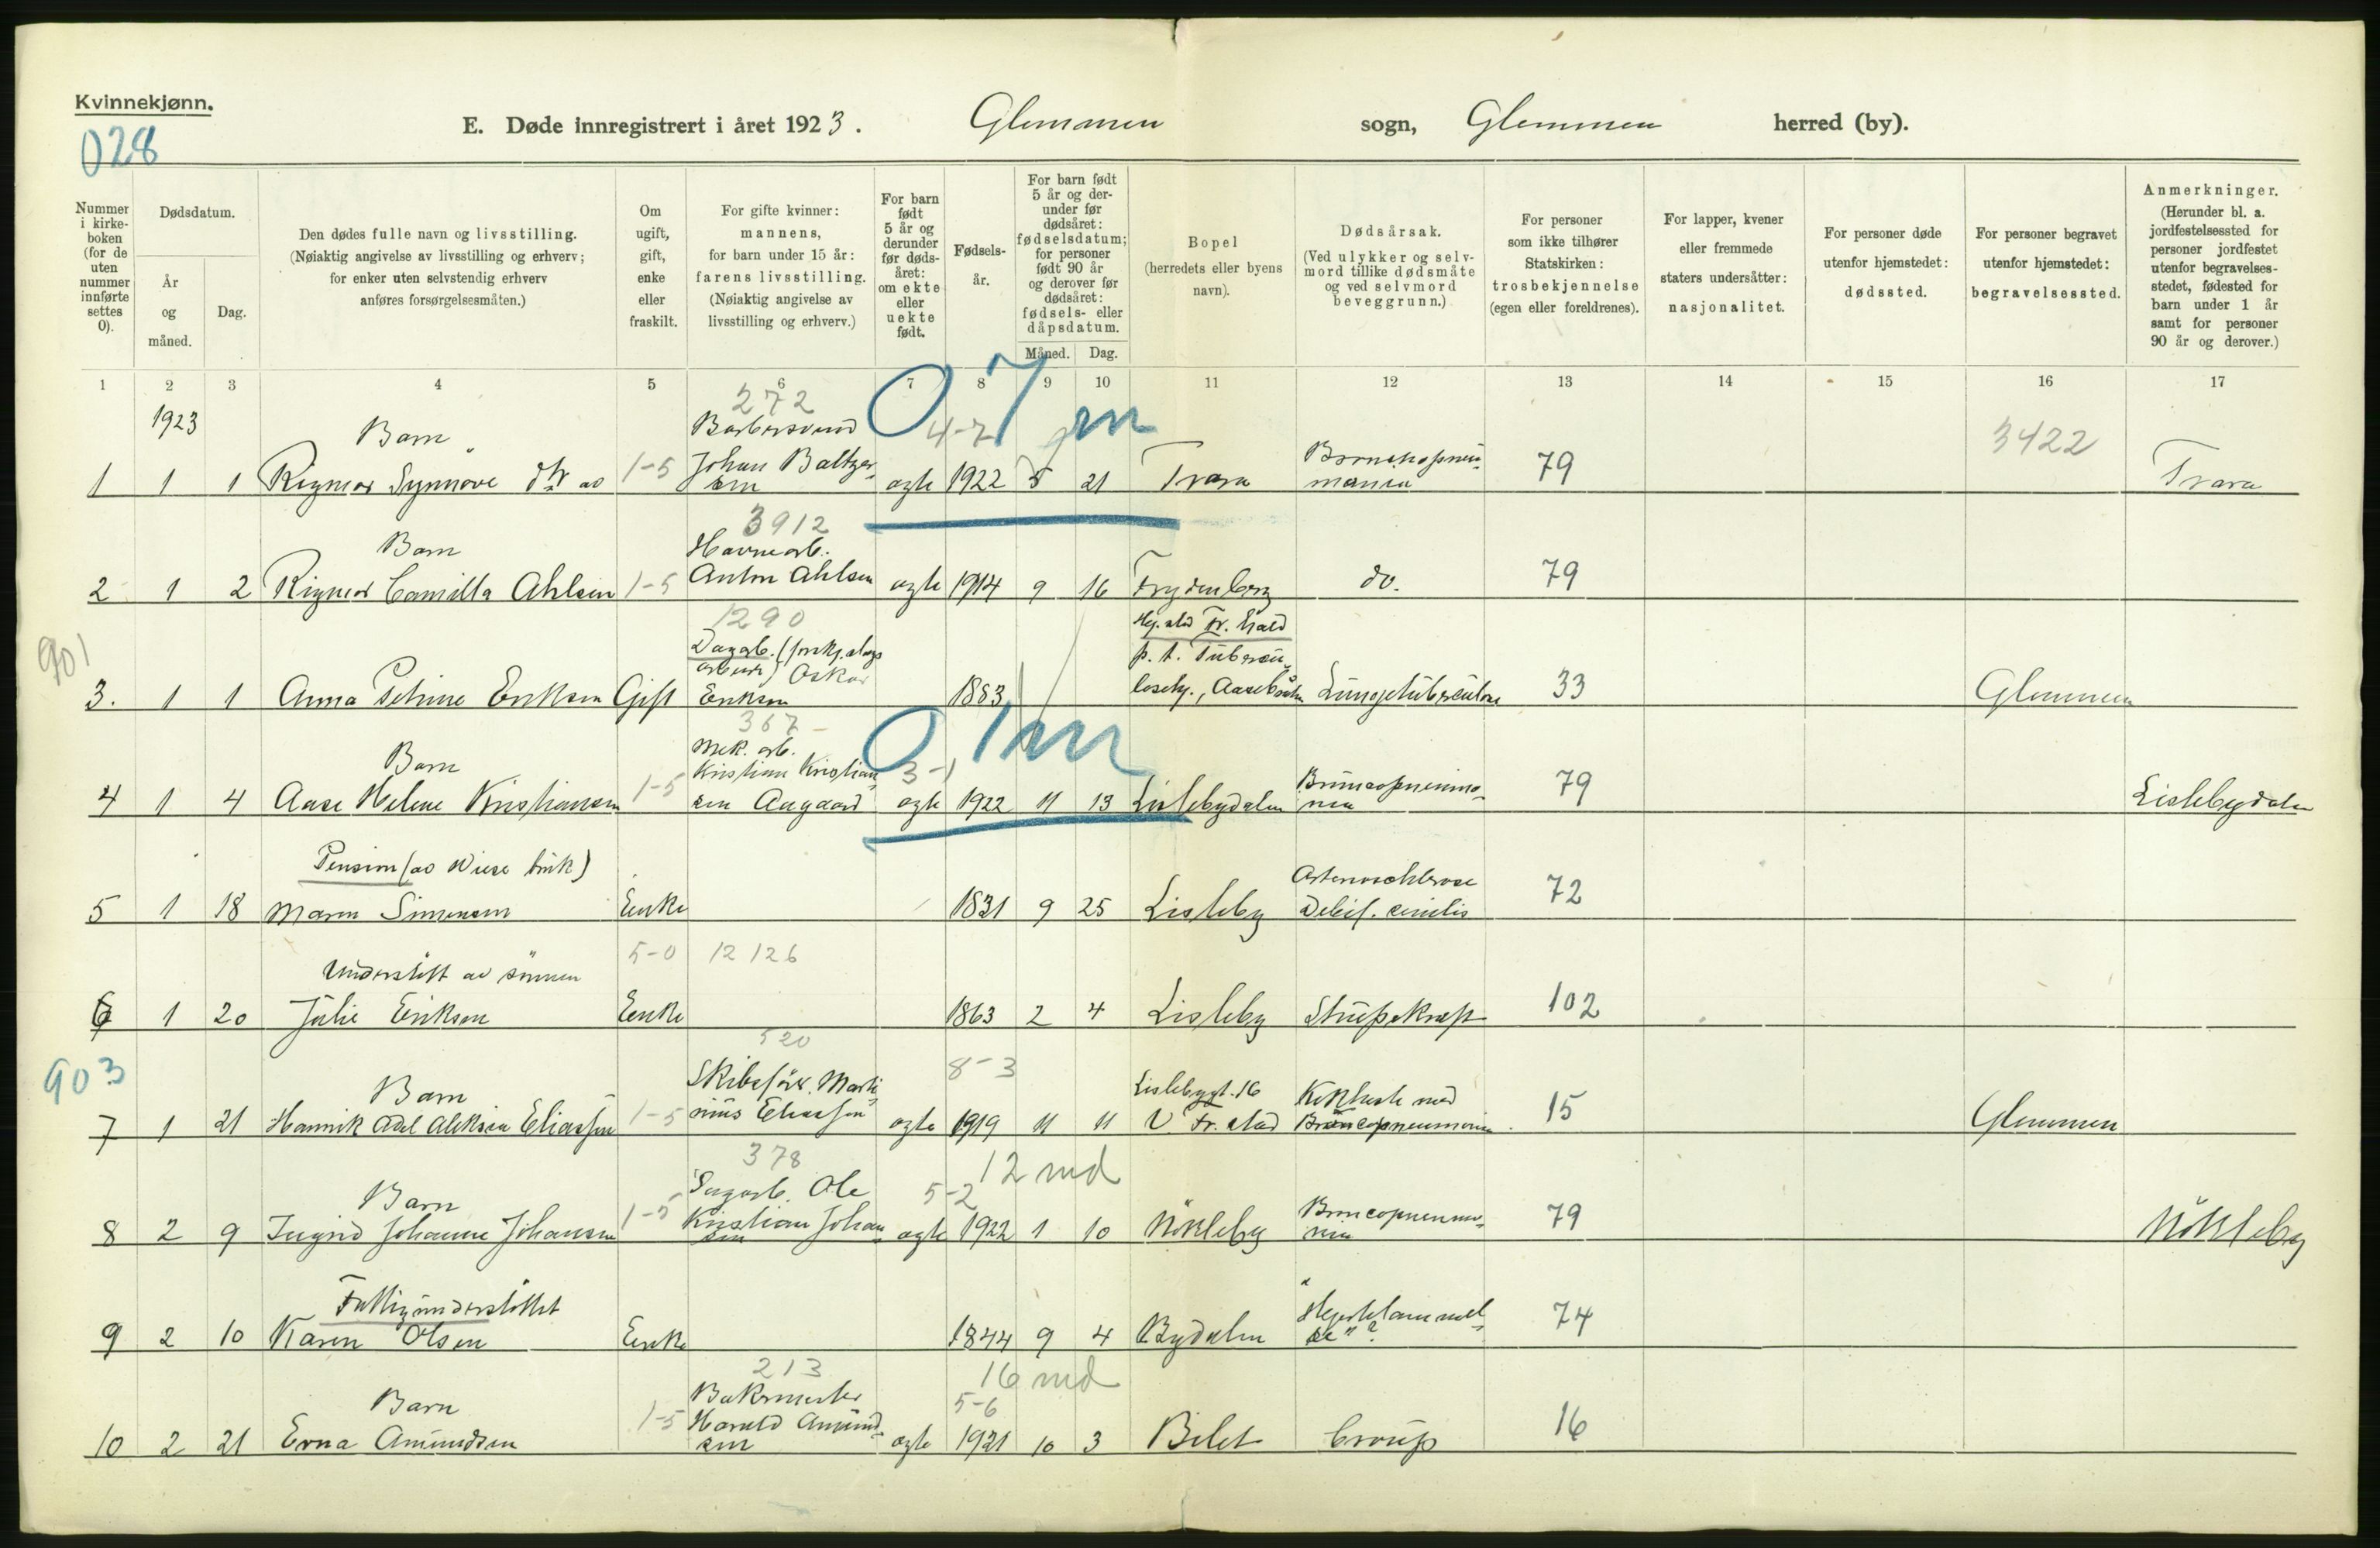 Kvinnekjønn.
028
E. Døde innregistrert i året 1923. Glemmen sogn, Glemmen herred (by).
Nummer i kirke-boken (for de uten nummer innførte settes 0).
Dødsdatum.
År og måned.
Dag.
Den dødes fulle navn og livsstilling.
(Nøiaktig angivelse av livsstilling og erhverv;
for enker uten selvstendig erhverv
anføres forsørgelsesmåten.)
Om ugift, gift, enke eller fraskilt.
For gifte kvinner:
mannens,
for barn under 15 år:
farens livsstilling.
(Nøiaktig angivelse av
livsstilling og erhverv.)
For barn født 5 år og derunder før døds-året: om ekte eller uekte født.
Fødsels-
år.
For barn født
5 år og der-
under før
dødsåret:
fødselsdatum;
for personer
født 90 år
og derover før
dødsåret:
fødsels- eller
dåpsdatum.
Måned. Dag.
Bopel
(herredets eller byens
navn).
Dødsårsak.
(Ved ulykker og selv-
mord tillike dødsmåte
og ved selvmord
beveggrunn.)
For personer
som ikke tilhører
Statskirken:
trosbekjennelse
(egen eller foreldrenes).
For lapper, kvener
eller fremmede
staters undersåtter:
nasjonalitet.
For personer døde
utenfor hjemstedet:
dødssted.
For personer begravet
utenfor hjemstedet:
begravelsessted.
Anmerkninger.
(Herunder bl. a.
jordfestelsessted for
personer jordfestet
utenfor begravelses-
stedet, fødested for
barn under 1 år
samt for personer
90 år og derover.)
1 2 3 4 5 6 7 8 9 10 11 12 13 14 15 16 17
1923 Barn 272 4-7 07 m 3422
1 1 1 Rigmor Synnöve dtr av 1-5 Johan Baltzersen ægte 1922 5 21 Trara 79 Trara
Barn 3912
Havnearb.
2 1 2 Rigmor Camilla Ahlsen 1-5 Anton Ahlsen ægte 1914 9 16 Frydenberg do. 79
901 1290
Hj.sted Fr.stad
p. t. Tubercu-
3. 1 1 Anna Petrine Eriksen Gift Oskar Eriksen 1883 losehj., Lungetuberculose 33 Glemmen
367 01 m
Barn Mek. arb. 3-1
4 1 4 Aase Helene Kristiansen 1-5 Kristian Kristiansen Aagaard ægte 1922 11 13 Lislebydalen 79 Lislebydalen
Pension (av Wiese bruk)
5 1 18 Maren Simensen Enke 1831 9 25 Lisleby 72
5-0 12126
Understött av sönnen
6 1 20 Julie Eriksen Enke 1863 2 4 Lisleby Strupekræft 102
903 520 8-3
Barn Lislebygt. 16 Kikhoste med
7 1 21 Eliassen 1-5 ægte 1919 11 11 v Fr.stad Broncopneumonia 15 Glemmen
378 12 md
Barn Ole 5-2
8 2 9 Ingrid Johanne Johansen 1-5 Kristian Johansen ægte 1922 1 10 Nökleby Broncopneumonia 79 Nökleby
Fattigunderstöttet
9 2 10 Karen Olsen Enke 1844 9 4 Bydalen "Hjertelammelse"? 74
213 16 md
Barn Bakermester 5-6
10 2 21 Erna Amundsen 1-5 Harald Amundsen ægte 1921 10 3 Bilet Croup 16